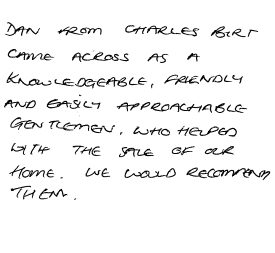 DAN FROM CHARLES BIRT
CAME ACROSS AS A
KNOWLEDGEABLE, FRIENDLY
AND EASILY APPROACHABLE
GENTLEMEN, WHO HELPED
WITH THE SALE OF OUR
HOME. WE WOULD RECOMMEND
THEM.